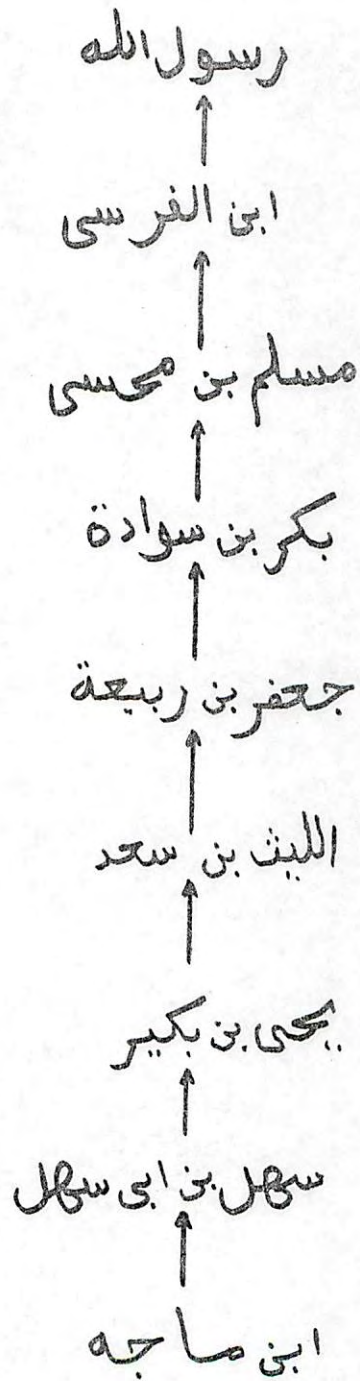 رسول الله
ابن الفرسى
مسلم بن محسى
بكر بن سوادة
جعفر بن ربيعة
الليث بن سعد
يحى بن بكير
سهل بن ابى سهل
ابن ماجه